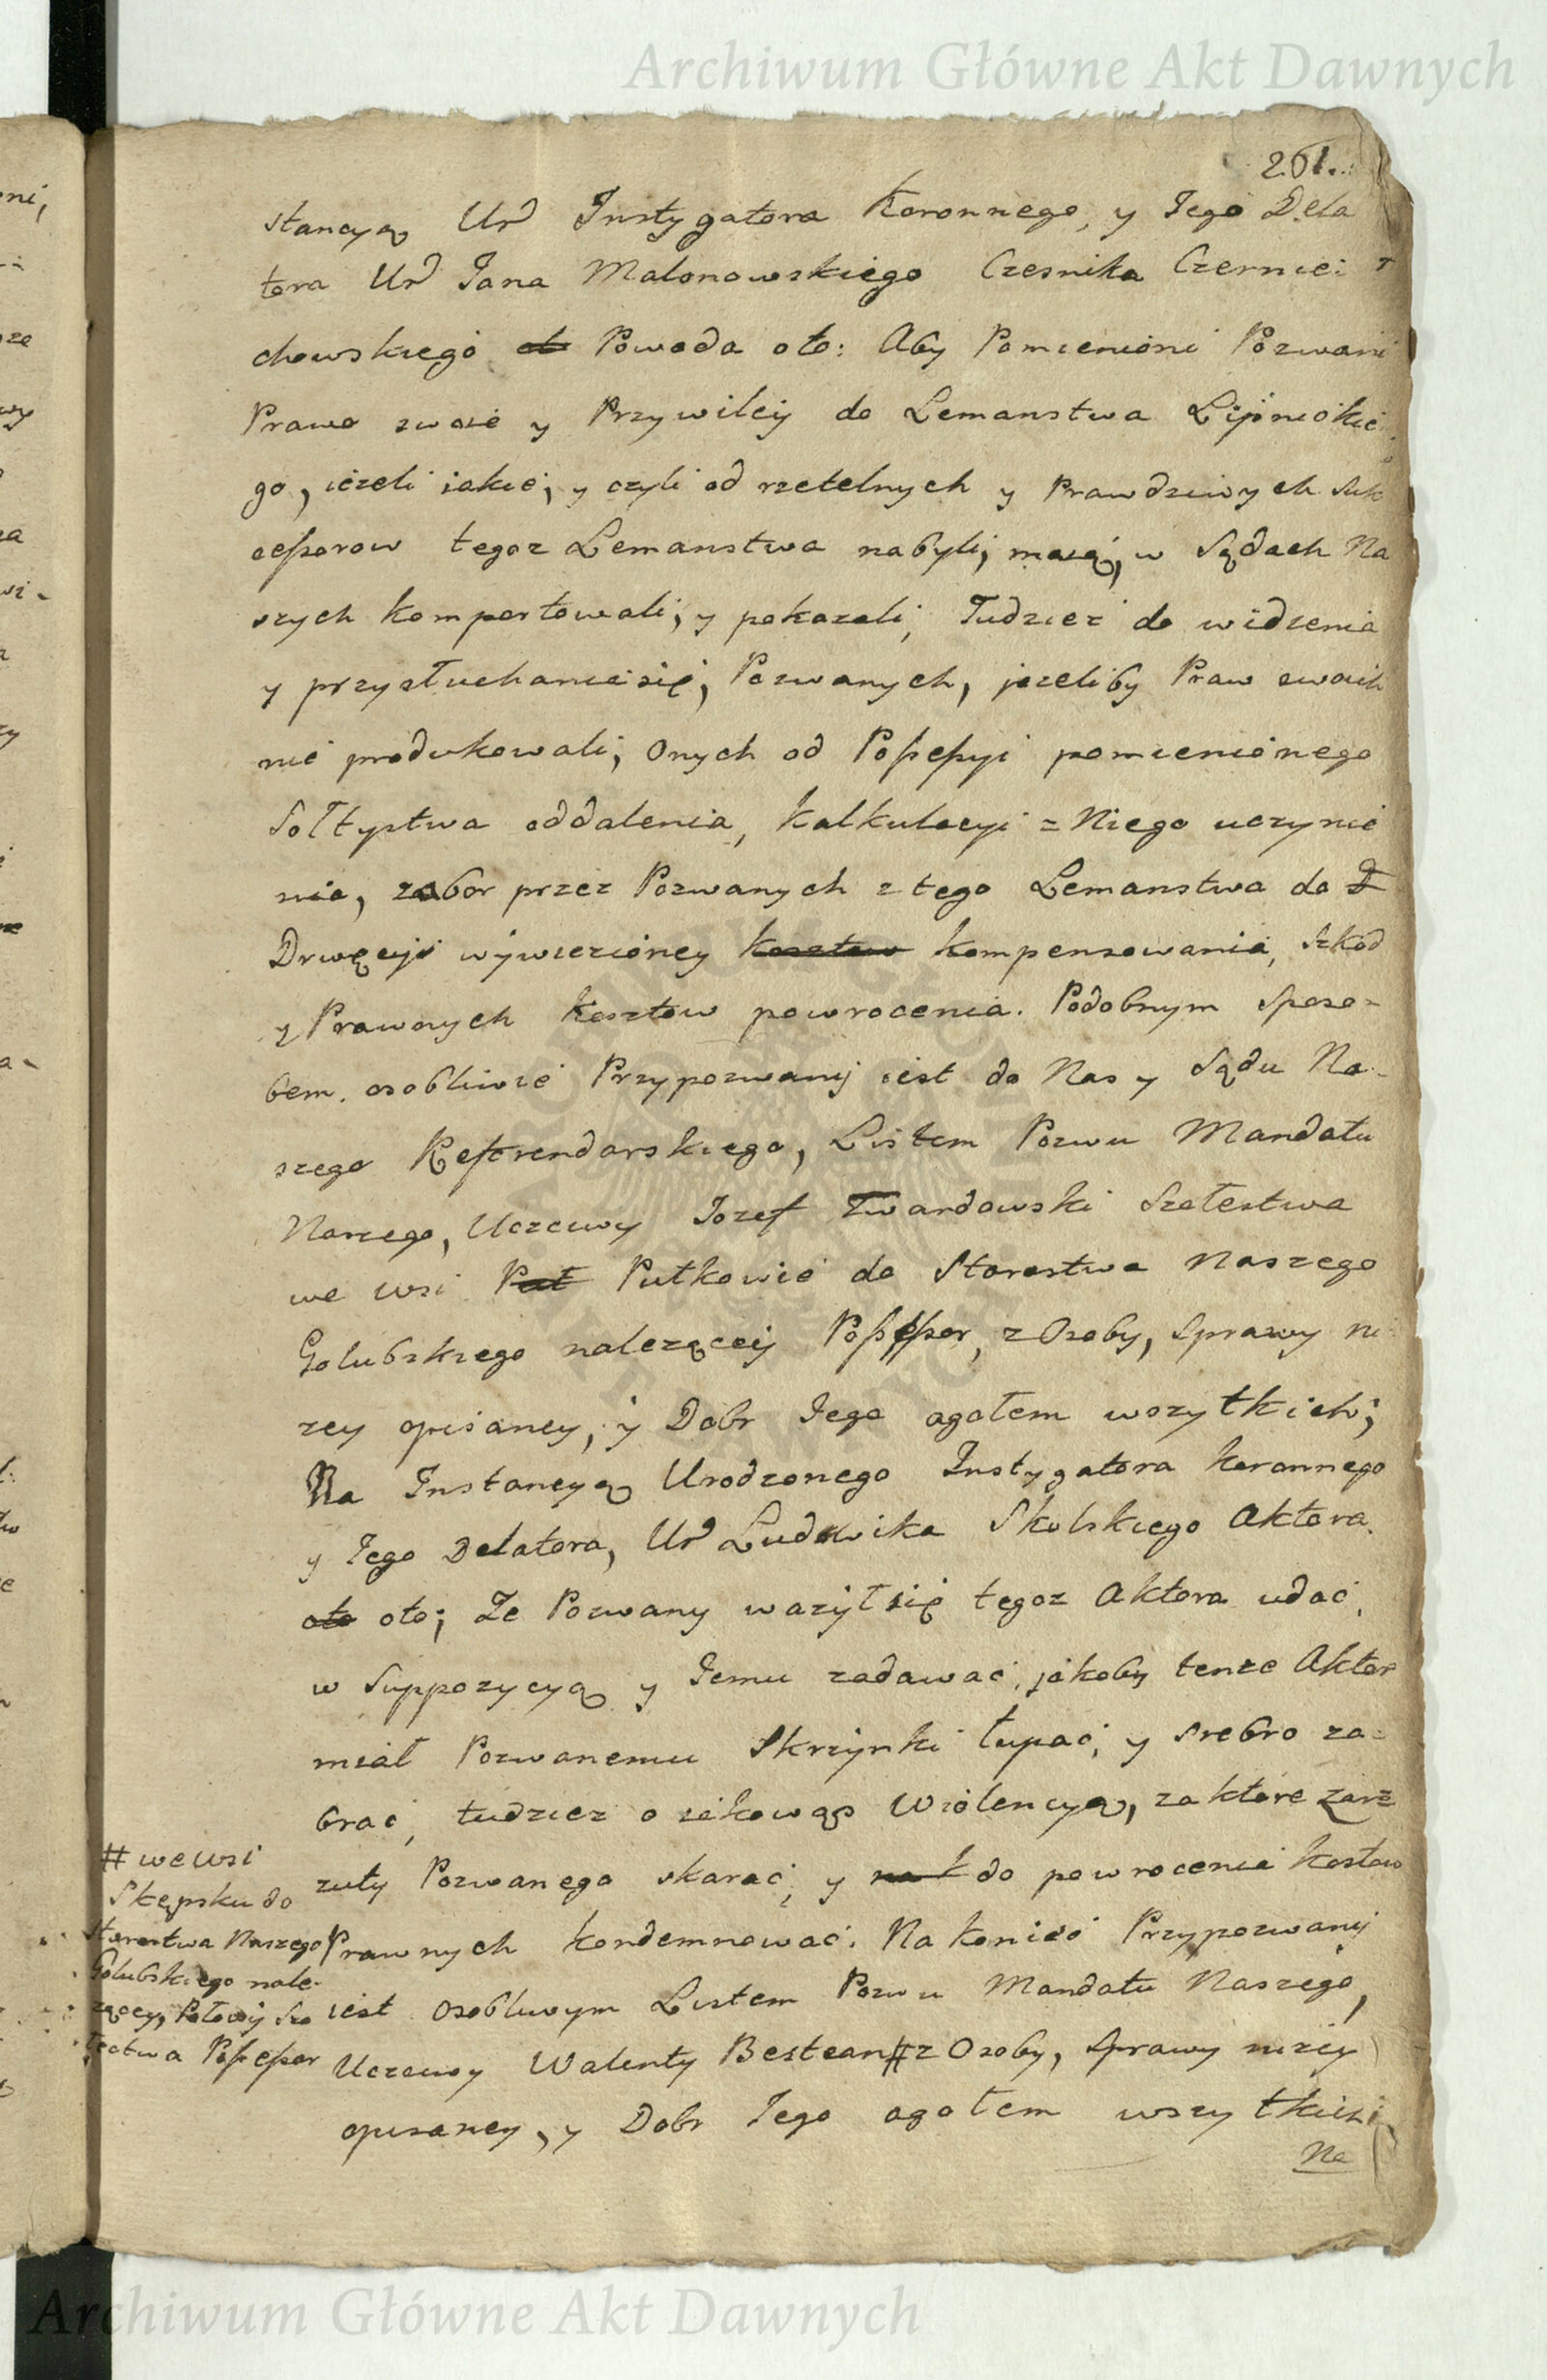 Archiwum Główne Akt Dawnych
261.
stancyą Ur Instygatora Koronnego, y Iego Dela
tora Ur Iana Malonowskiego Czesnika Czerniei
chowskiego Powoda oto: Aby Pomienioni Pozwani
Prawo swoie y Przywiley do Lemanstwa Lipnickie
go, ieżeli iakie, y czyli od rzetelnych y Prawdziwych Suk
cessorow tegoz Lemanstwa nabyli, maią, w Sądach Na
szych komportowali, y pokazali, Tudziez do widzenia
y przysłuchania się, Pozwanych, jezeliby Praw swoich
nie produkowali, Onych od Possessyi pomienionego
Sołtystwa oddalenia, Kalkulacyi z Niego uczynie
nia, zabor przez Pozwanych z tego Lemanstwa do
Drwęcyi wywiezioney kosztow kompensowania, Szkod
y Prawnych Kosztow powrocenia. Podobnym Sposo-
bem osobliwie Przypozwany iest do Nas y Sądu Na-
szego Referendarskiego, Listem Pozwu Mandatu
Naszego, Uczciwy Iozef Twardowski Szołestwa
we wsi Pat Putkowie do Starostwa Naszego
Golubskiego nalezącey Possessor, z Osoby, Sprawy ni
zey opisaney, y Dobr Iego ogołem wszytkich;
Na Instancyą Urodzonego Instygatora koronnego
y Iego Delatora, Ur Ludwika Skolskiego Aktora
oto oto; Ze Pozwany wazył się tegoz Aktora udać
w Suppozycyą y Iemu zadawać, jakoby tenze Aktor
miał Pozwanemu Skrzynki łupać, y srebro za-
brać, tudziez o iakowąs Wiolencyą, za ktore zarz
zuty Pozwanego skarać, y do powrocenia kosztow
Prawnych kondemnować. Na koniec Przypozwany
iest osobliwym Listem Pozwu Mandatu Naszego,
Uczciwy Walenty Bestean # z Osoby, Sprawy nizey
opisaney, y Dobr Iego ogołem wszytkich
Na
# we wsi
Skępsku do
Starostwa Naszego
Golubskiego nale-
zącey, Połowy Szo
łectwa Possessor
Archiwum Główne Akt Dawnych